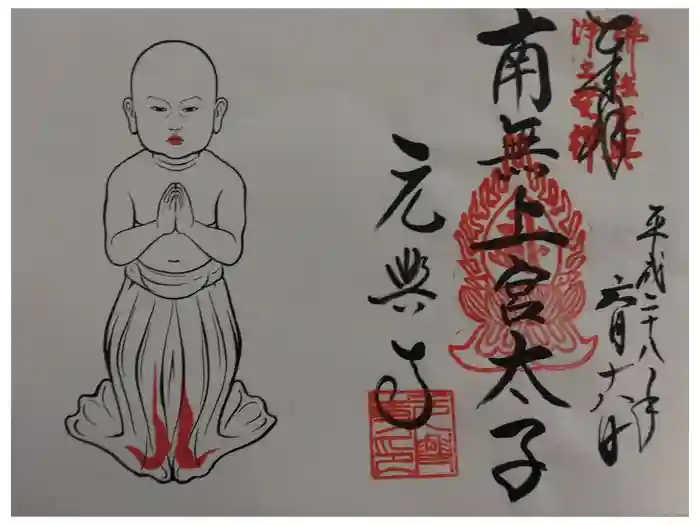 奉拝
平成二十八年
六月十八日
南無上宮太子
元興寺